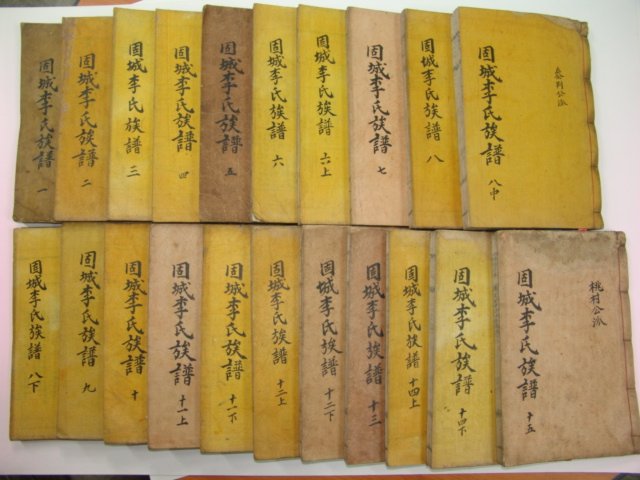 固城李氏族譜 一
固城李氏族譜 二
固城李氏族譜 三
固城李氏族譜 四
固城李氏族譜 五
固城李氏族譜 六
固城李氏族譜 六上
固城李氏族譜 七
固城李氏族譜 八
固城李氏族譜 八中
判公派
固城李氏族譜 八下
固城李氏族譜 九
固城李氏族譜 十
固城李氏族譜 十一上
固城李氏族譜 十一下
固城李氏族譜 十二上
固城李氏族譜 十二下
固城李氏族譜 十三
固城李氏族譜 十四上
固城李氏族譜 十四下
固城李氏族譜 十五
桃村公派